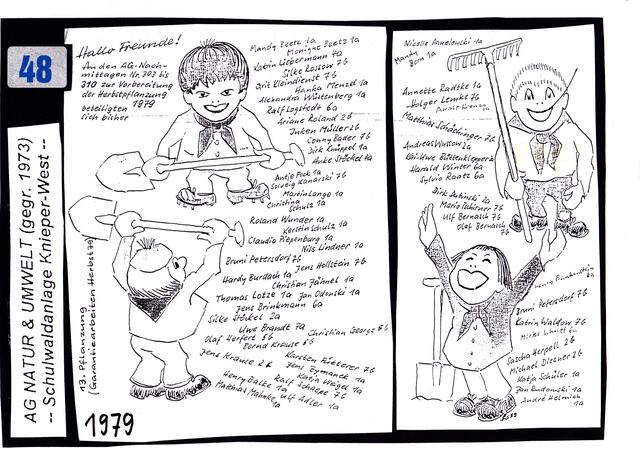 48
AG NATUR & UMWELT (gegr. 1973)
-- Schulwaldanlage Knieper-West --
Hallo Freunde!
An den AG-Nach-
mittagen Nr. 303 bis
310 zur Vorbereitung
der Herbstpflanzung
1979
beteiligten
sich bisher
Mandy Beetz 1a
Monique Beetz 1a
Katrin Liebermann 4a
Silke Rossow 7b
Grit Kleindienst 7b
Hanka Menzel 1a
Alexandra Wüstenberg 1a
Ralf Logstedt 6a
Ariane Roland 2b
Inken Müller 2b
Conny Bader 7b
Dirk Knüppel 1a
Anke Stöckel 4a
Antje Pock 1a
Solveig Kanarski 7b
Martin Lange 1a
Christina
Schulz 1a
Roland Wunder 1a
Kerstin Schulz 1a
Claudia Piepenburg 1a
Nils Lindner 1a
Bruni Petersdorf 7b
Jens Hollstein 7b
Hardy Burdach 1a
Christian Jähnel 1a
Thomas Lotze 1a Jan Odonski 1a
Jens Brinkmann 6a
Silke Stöckel 2a
Uwe Brandt 7a Christian George 6b
Olaf Herfert 5b
Bernd Krause 6b
Jens Krause 2b
Karsten Fütterer 7b
Jens Zymanek 1a
Karin Weigel 1a
Henry Balke 1a Ralf Schaepe 7b
Matthias Mahnke 1a Ulf Adler 1a
13. Pflanzung
(Garantiearbeiten Herbst 79)
1979
Nicolle Pawelowski 1a
Mandy
Born 1a
Annette Radtke 1a
Holger Lemke 7b
Matthias Schachinger 7b
Andreas Wussow 2a
Kai-Uwe Bittenklepper 2b
Harald Winter 6a
Sylvio Raatz 6a
Dirk Dubinski 2a
Mario Schirner 7b
Ulf Bernasch 7b
Olaf Bernasch
7b
Henry Frankenstein
6a
Bruni Petersdorf 7b
Katrin Waldow 7b
Sascha Hergell 2b
Michael Diesner 2b
Katja Schüler 1a
Jan Rudomski 1a
André Helmich
1a